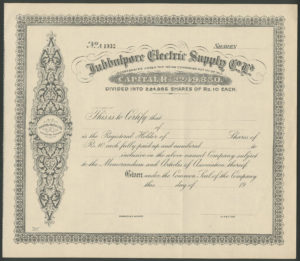 No. A 1932 SHARES
Jubbulpore Electric Supply Co. Ld.
CAPITAL Rs 22,48,850.
DIVIDED INTO 224,885 SHARES OF Rs. 10 EACH.
This is to Certify that
of
is the Registered Holder of Shares of
Rs. 10 each fully paid up and numbered to
inclusive in the above named Company subject
to the Memorandum and Articles of Association thereof
Given under the Common Seal of the Company
this day of 19